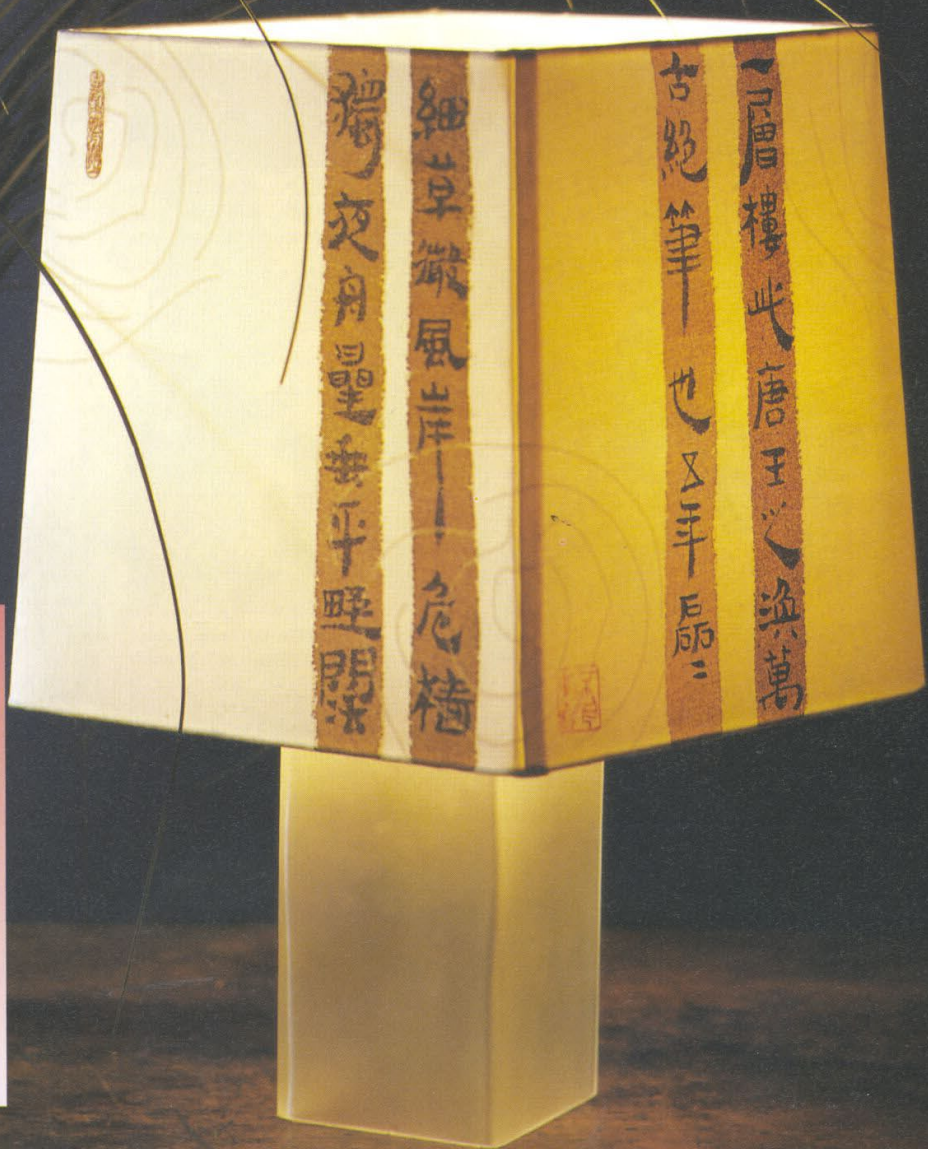 一層樓此唐王之渙萬
古絕筆也五年磊二
細草微風岸危檣
獨夜舟星垂平野闊